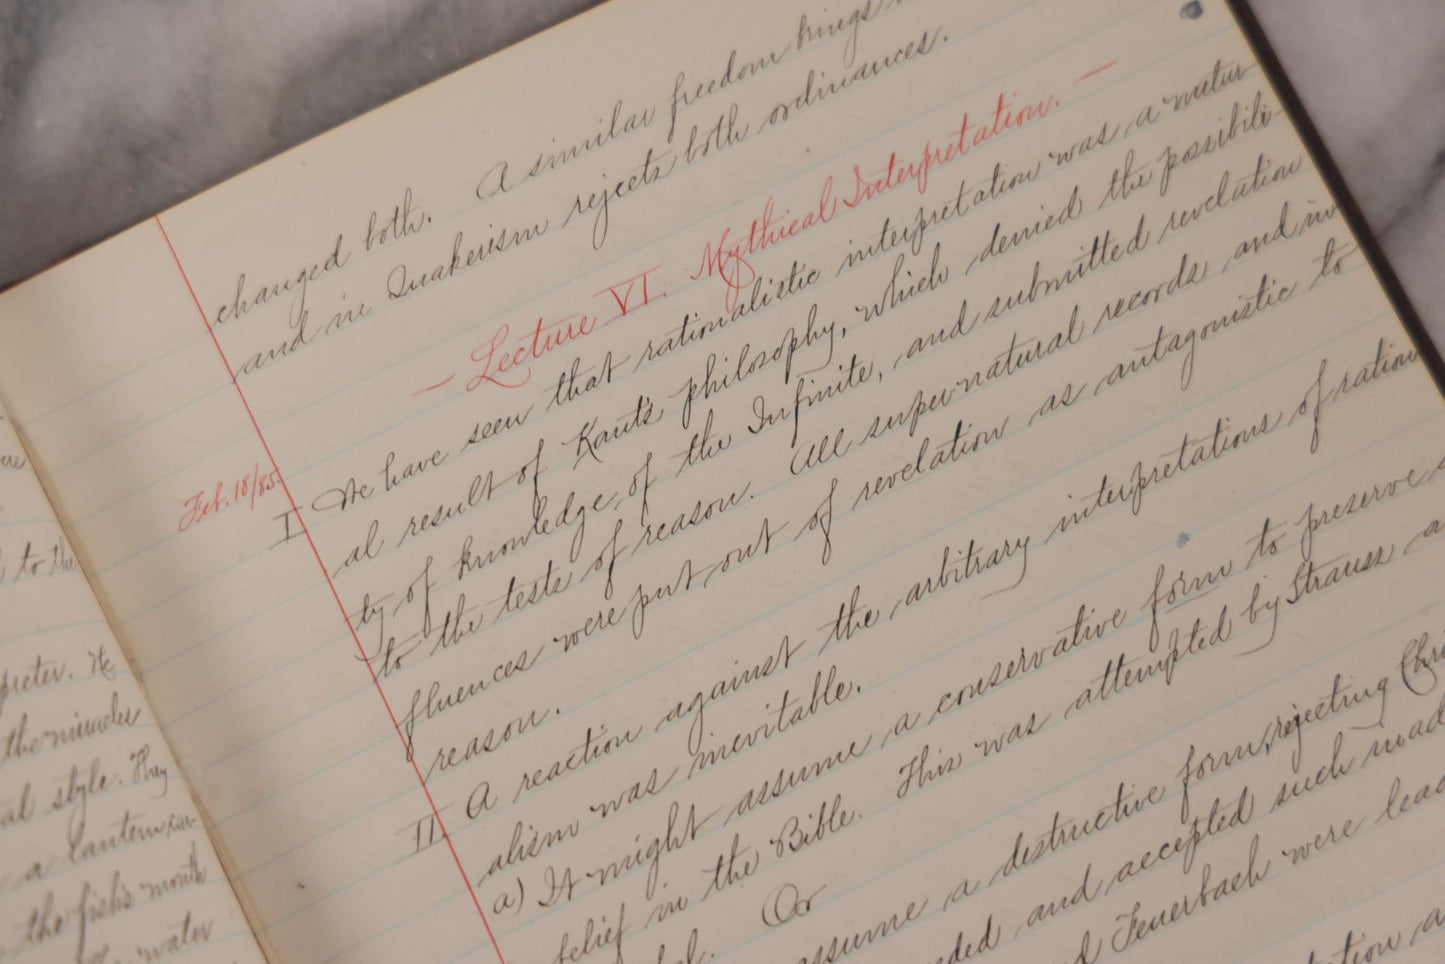 ere
to the
preter. He
the miracles
al style. They
a lantern
the fish's mouth
water
changed both. A similar freedom kings
and in Quakerism rejects both ordinances.
— Lecture VI. Mythical Interpretation. —
Feb. 18/85.
I We have seen that rationalistic interpretation was a natur
al result of Kant's philosophy, which denied the possibili-
ty of knowledge of the Infinite, and submitted revelation
to the tests of reason. All supernatural records and in
fluences were put out of revelation as antagonistic to
reason.
II. A reaction against the arbitrary interpretations of ration
alism was inevitable.
a) It might assume a conservative form to preserve
belief in the Bible. This was attempted by Strauss
Or
assume a destructive form, rejecting Chri
ded and accepted such
d Feuerbach were lead